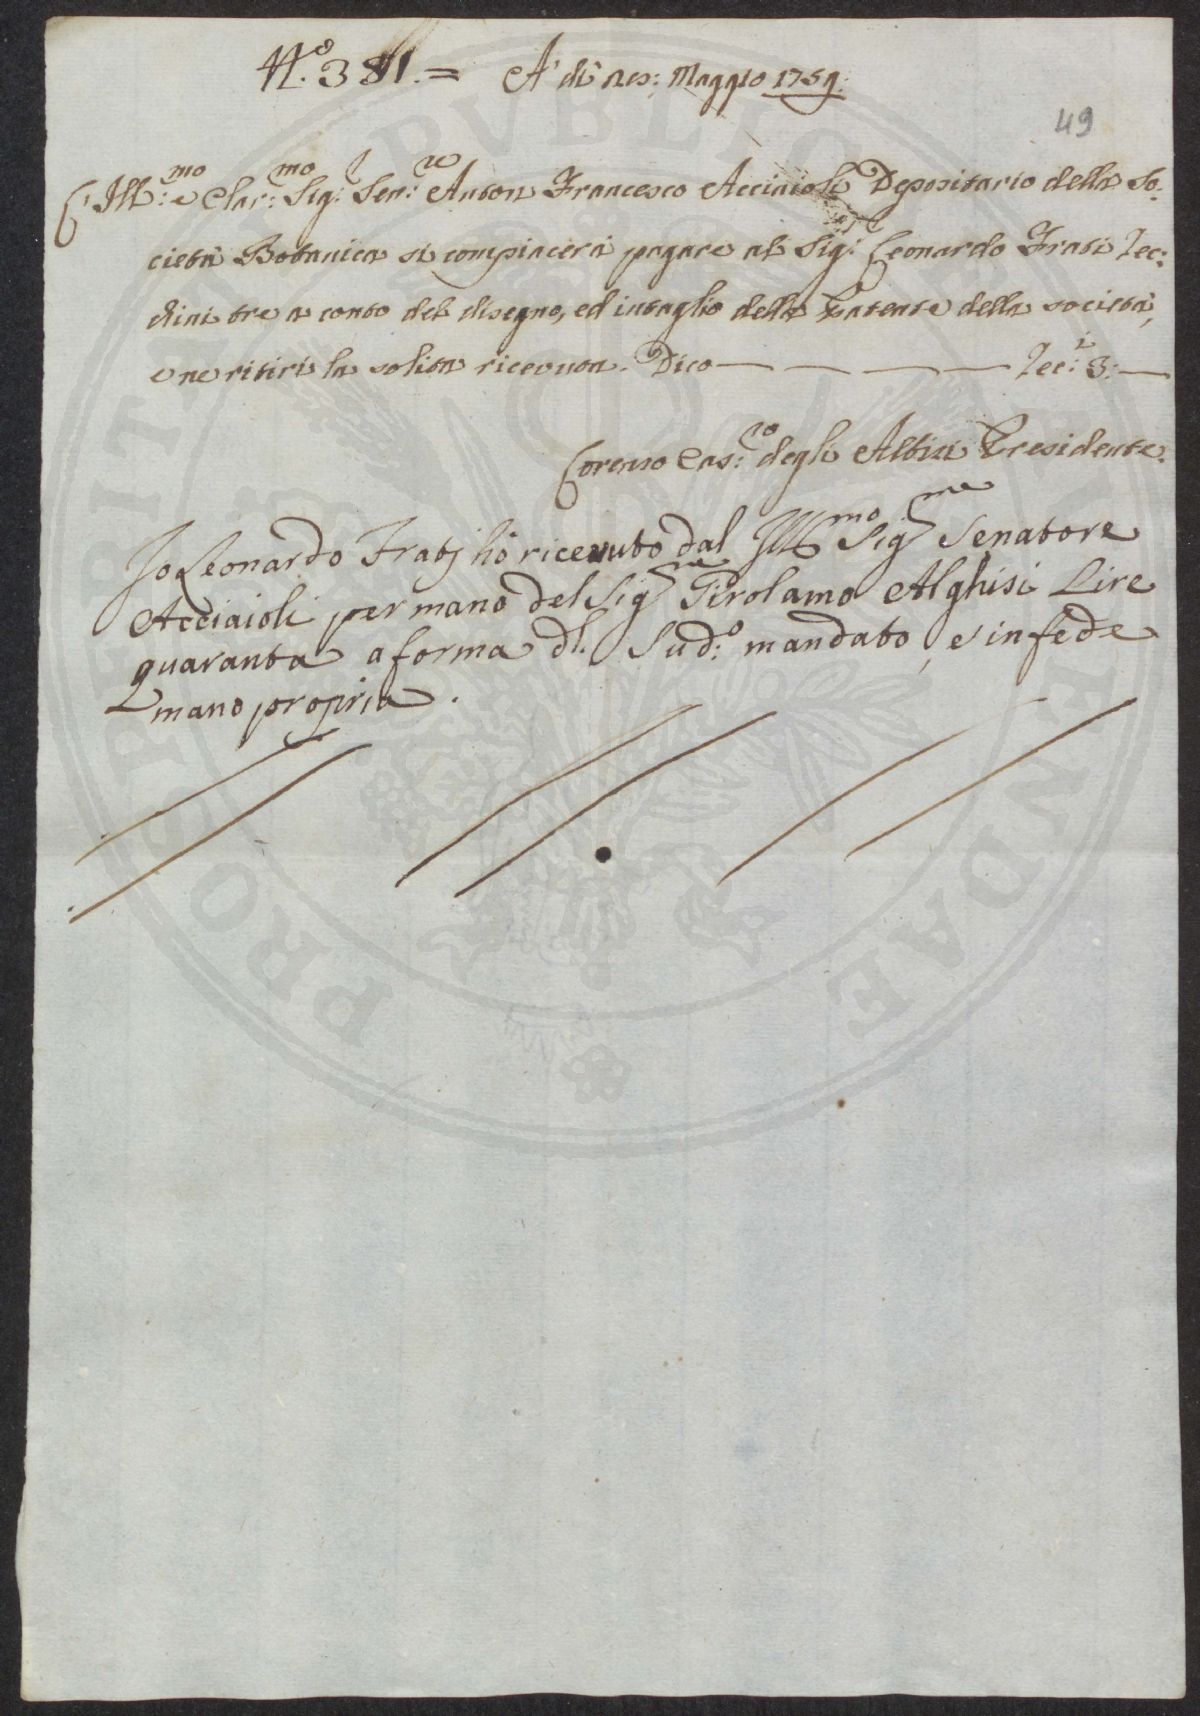 N.º 381. = A' dì 25: Maggio 1759:
49
L' Ill:mo e Clar:mo Sig: Sen:re Anton Francesco Acciaioli Depositario della So-
cietà Botanica si compiacerà pagare al Sig.r Leonardo Frati Zec:
chini tre a conto del disegno, ed intaglio della Patente della società,
e ne ritiri la solita ricevuta. Dico — — — — — Zec:i 3: —
Lorenzo Cas:ro degli Albizi Presidente.
Io Leonardo Frati hò ricevuto dal Ill.mo Sig.re Senatore
Acciaioli per mano del Sig.re Girolamo Alghisi Lire
quaranta a forma dl. Sud:º mandato, e in fede
mano propria.
PVBLICAE
PROSPERITATI